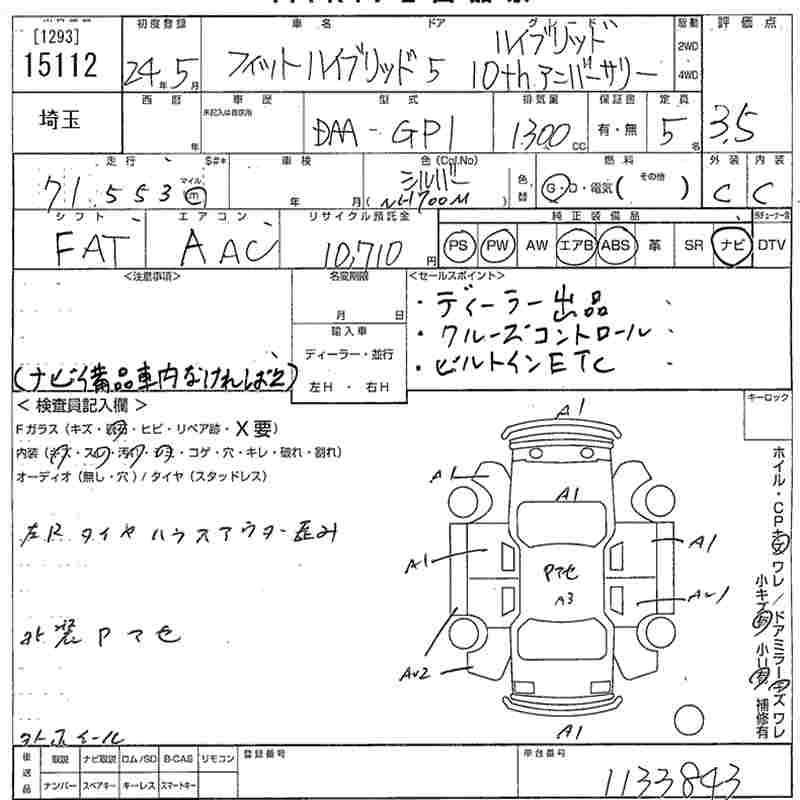 [1293]
15112
初度登録
24年5月
車名
フィットハイブリッド
ドア
5
グレード
ハイブリッド
10thアニバーサリー
駆動
2WD
4WD
評価点
3.5
埼玉
西暦
年
車歴
未記入は自家用
型式
DAA-GP1
排気量
1300cc
保証書
有・無
定員
5名
走行
71,553
マイル
m
S#*
車検
年 月
色(Col.No)
シルバー
NH700M
色替
燃料
G・D・電気( その他 )
外装
C
内装
C
シフト
FAT
エアコン
AAC
リサイクル預託金
10,710円
純正装備品
PS PW AW エアB ABS 革 SR ナビ DTV
<注意事項>
(ナビ備品車内なければ×)
名変期限
月 日
輸入車
ディーラー・並行
左H ・ 右H
<セールスポイント>
・ディーラー出品
・クルーズコントロール
・ビルトインETC
<検査員記入欄>
キーロック
Fガラス(キズ・・ヒビ・リペア跡・X要)
内装(キズ・スレ・汚れ・・コゲ・穴・キレ・破れ・割れ)
オーディオ(無し・穴)/タイヤ(スタッドレス)
左Rタイヤハウスアウター歪み
外装Pマセ
外ホイール
A1
A1
A1
A1
A1
Pマセ
A3
AU1
AU2
A1
ホイル・CPキズ ワレ/ドアミラーキズ ワレ
小キズ有 小凹有 補修有
後送品
取説 ナビ取説 ロム/SD B-CAS リモコン
ナンバー スペアキー キーレス スマートキー
登録番号
車台番号
1133843